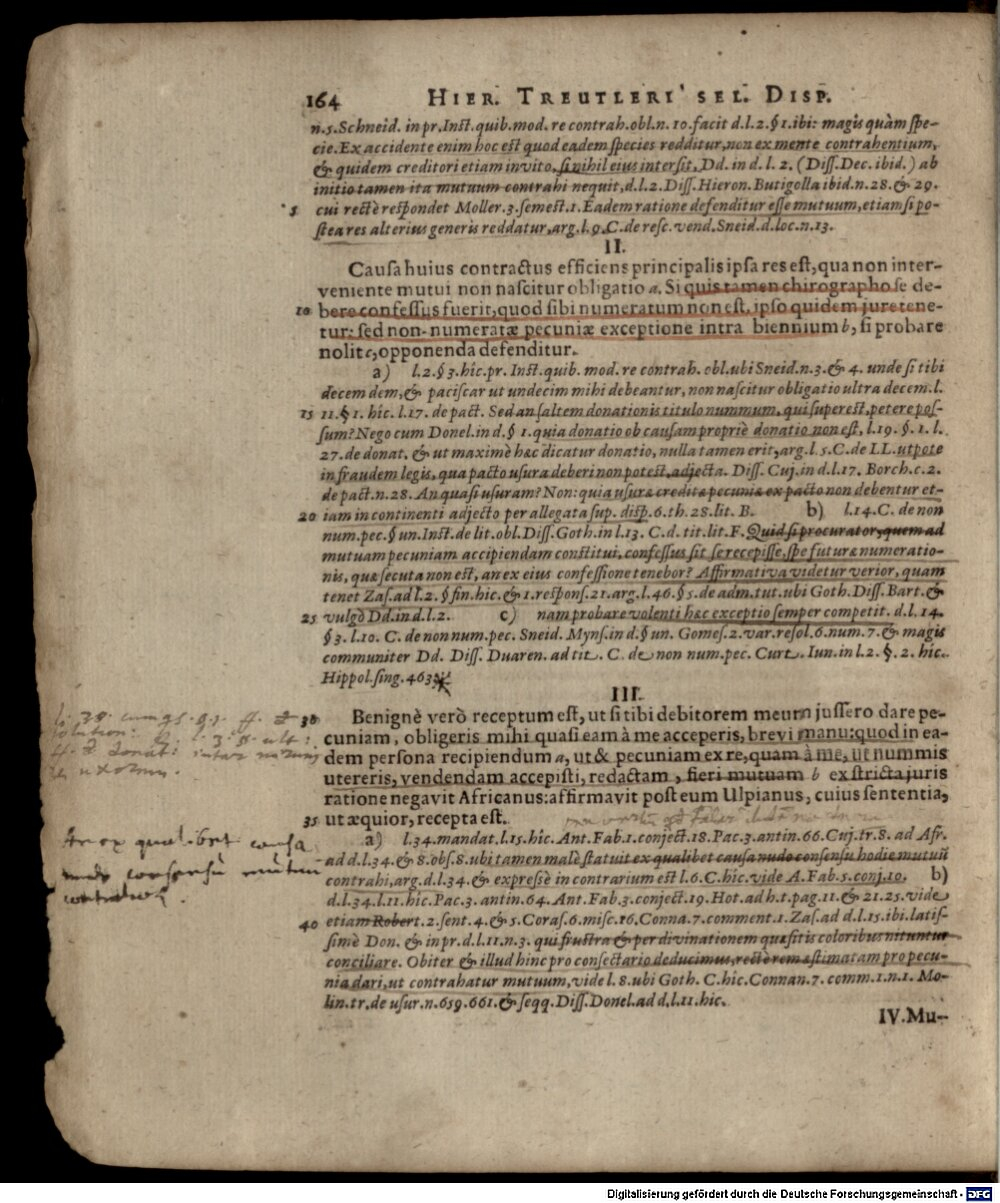 164 HIER. TREUTLERI SEL. DISP.
n. 5. Schneid. in pr. Inst. quib. mod. re contrah. obl. n. 10. facit d. l. 2. § 1. ibi: magis quàm spe-
cie. Ex accidente enim hoc est quod eadem species redditur, non ex mente contrahentium,
& quidem creditori etiam invito, si nihil eius intersit, Dd. in d. l. 2. (Diss. Dec. ibid.) ab
initio tamen ita mutuum contrahi nequit, d. l. 2. Diss. Hieron. Butigolla ibid. n. 28. & 29.
5 cui rectè respondet Moller. 3. semest. 1. Eadem ratione defenditur esse mutuum, etiam si po-
stea res alterius generis reddatur, arg. l. 9. C. de resc. vend. Sneid. d. loc. n. 13.
II.
Causa huius contractus efficiens principalis ipsa res est, qua non inter-
veniente mutui non nascitur obligatio a. Si quis tamen chirographo se de-
10 bere confessus fuerit, quod sibi numeratum non est, ipso quidem jure tene-
tur: sed non-numeratæ pecuniæ exceptione intra biennium b, si probare
nolit c, opponenda defenditur.
a) l. 2. § 3. hîc. pr. Inst. quib. mod. re contrah. obl. ubi Sneid. n. 3. & 4. unde si tibi
decem dem, & paciscar ut undecim mihi debeantur, non nascitur obligatio ultra decem. l.
15 11. § 1. hic. l. 17. de pact. Sed an saltem donationis titulo nummum, qui superest, petere pos-
sum? Nego cum Donel. in d. § 1. quia donatio ob causam propriè donatio non est, l. 19. §. 1. l.
27. de donat. & ut maximè hæc dicatur donatio, nulla tamen erit, arg. l. 5. C. de LL. utpote
in fraudem legis, qua pacto usura deberi non potest, adjecta. Diss. Cuj. in d. l. 17. Borch. c. 2.
de pact. n. 28. An quasi usuram? Non: quia usuræ creditæ pecuniæ ex pacto non debentur et-
20 iam in continenti adjecto per allegata sup. disp. 6. th. 28. lit. B. b) l. 14. C. de non
num. pec. § un. Inst. de lit. obl. Diss. Goth. in l. 13. C. d. tit. lit. F. Quid si procurator, quem ad
mutuam pecuniam accipiendam constitui, confessus sit se recepisse, spe futuræ numeratio-
nis, quæ secuta non est, an ex eius confessione tenebor? Affirmativa videtur verior, quam
tenet Zas. ad l. 2. § fin. hic. & 1. respons. 21. arg. l. 46. § 5. de adm. tut. ubi Goth. Diss. Bart. &
25 vulgò Dd. in d. l. 2. c) nam probare volenti hæc exceptio semper competit. d. l. 14.
§ 3. l. 10. C. de non num. pec. Sneid. Myns. in d. § un. Gomes. 2. var. resol. 6. num. 7. & magis
communiter Dd. Diss. Duaren. ad tit. C. de non num. pec. Curt. Iun. in l. 2. §. 2. hic.
Hippol. sing. 463.
III.
30 Benignè verò receptum est, ut si tibi debitorem meum jussero dare pe-
cuniam, obligeris mihi quasi eam à me acceperis, brevi manu: quod in ea-
dem persona recipiendum a, ut & pecuniam ex re, quam à me, ut nummis
utereris, vendendam accepisti, redactam, fieri mutuam b ex stricta juris
ratione negavit Africanus: affirmavit post eum Ulpianus, cuius sententia,
35 ut æquior, recepta est.
An ex qualibet causa
nudo consensu mutuum
a) l. 34. mandat. l. 15. hîc. Ant. Fab. 1. conject. 18. Pac. 3. antin. 66. Cuj. tr. 8. ad Afr.
ad d. l. 34. & 8. obs. 8. ubi tamen malè statuit ex qualibet causa nudo consensu hodie mutuū
contrahi, arg. d. l. 34. & expressè in contrarium est l. 6. C. hîc. vide A. Fab. 5. conj. 10. b)
d. l. 34. l. 11. hic. Pac. 3. antin. 64. Ant. Fab. 3. conject. 19. Hot. ad h. t. pag. 11. & 21. 25. vide
40 etiam Robert. 2. sent. 4. & 5. Coras. 6. misc. 16. Conna. 7. comment. 1. Zas. ad d. l. 15. ibi. latis-
simè Don. & in pr. d. l. 11. n. 3. qui frustra & per divinationem quæsitis coloribus nituntur
conciliare. Obiter & illud hinc pro consectario deducimus, rectè rem æstimatam pro pecu-
nia dari, ut contrahatur mutuum, vide l. 8. ubi Goth. C. hic. Connan. 7. comm. 1. n. 1. Mo-
lin. tr. de usur. n. 659. 661. & seqq. Diss. Donel. ad d. l. 11. hic.
IV. Mu-
Digitalisierung gefördert durch die Deutsche Forschungsgemeinschaft - DFG